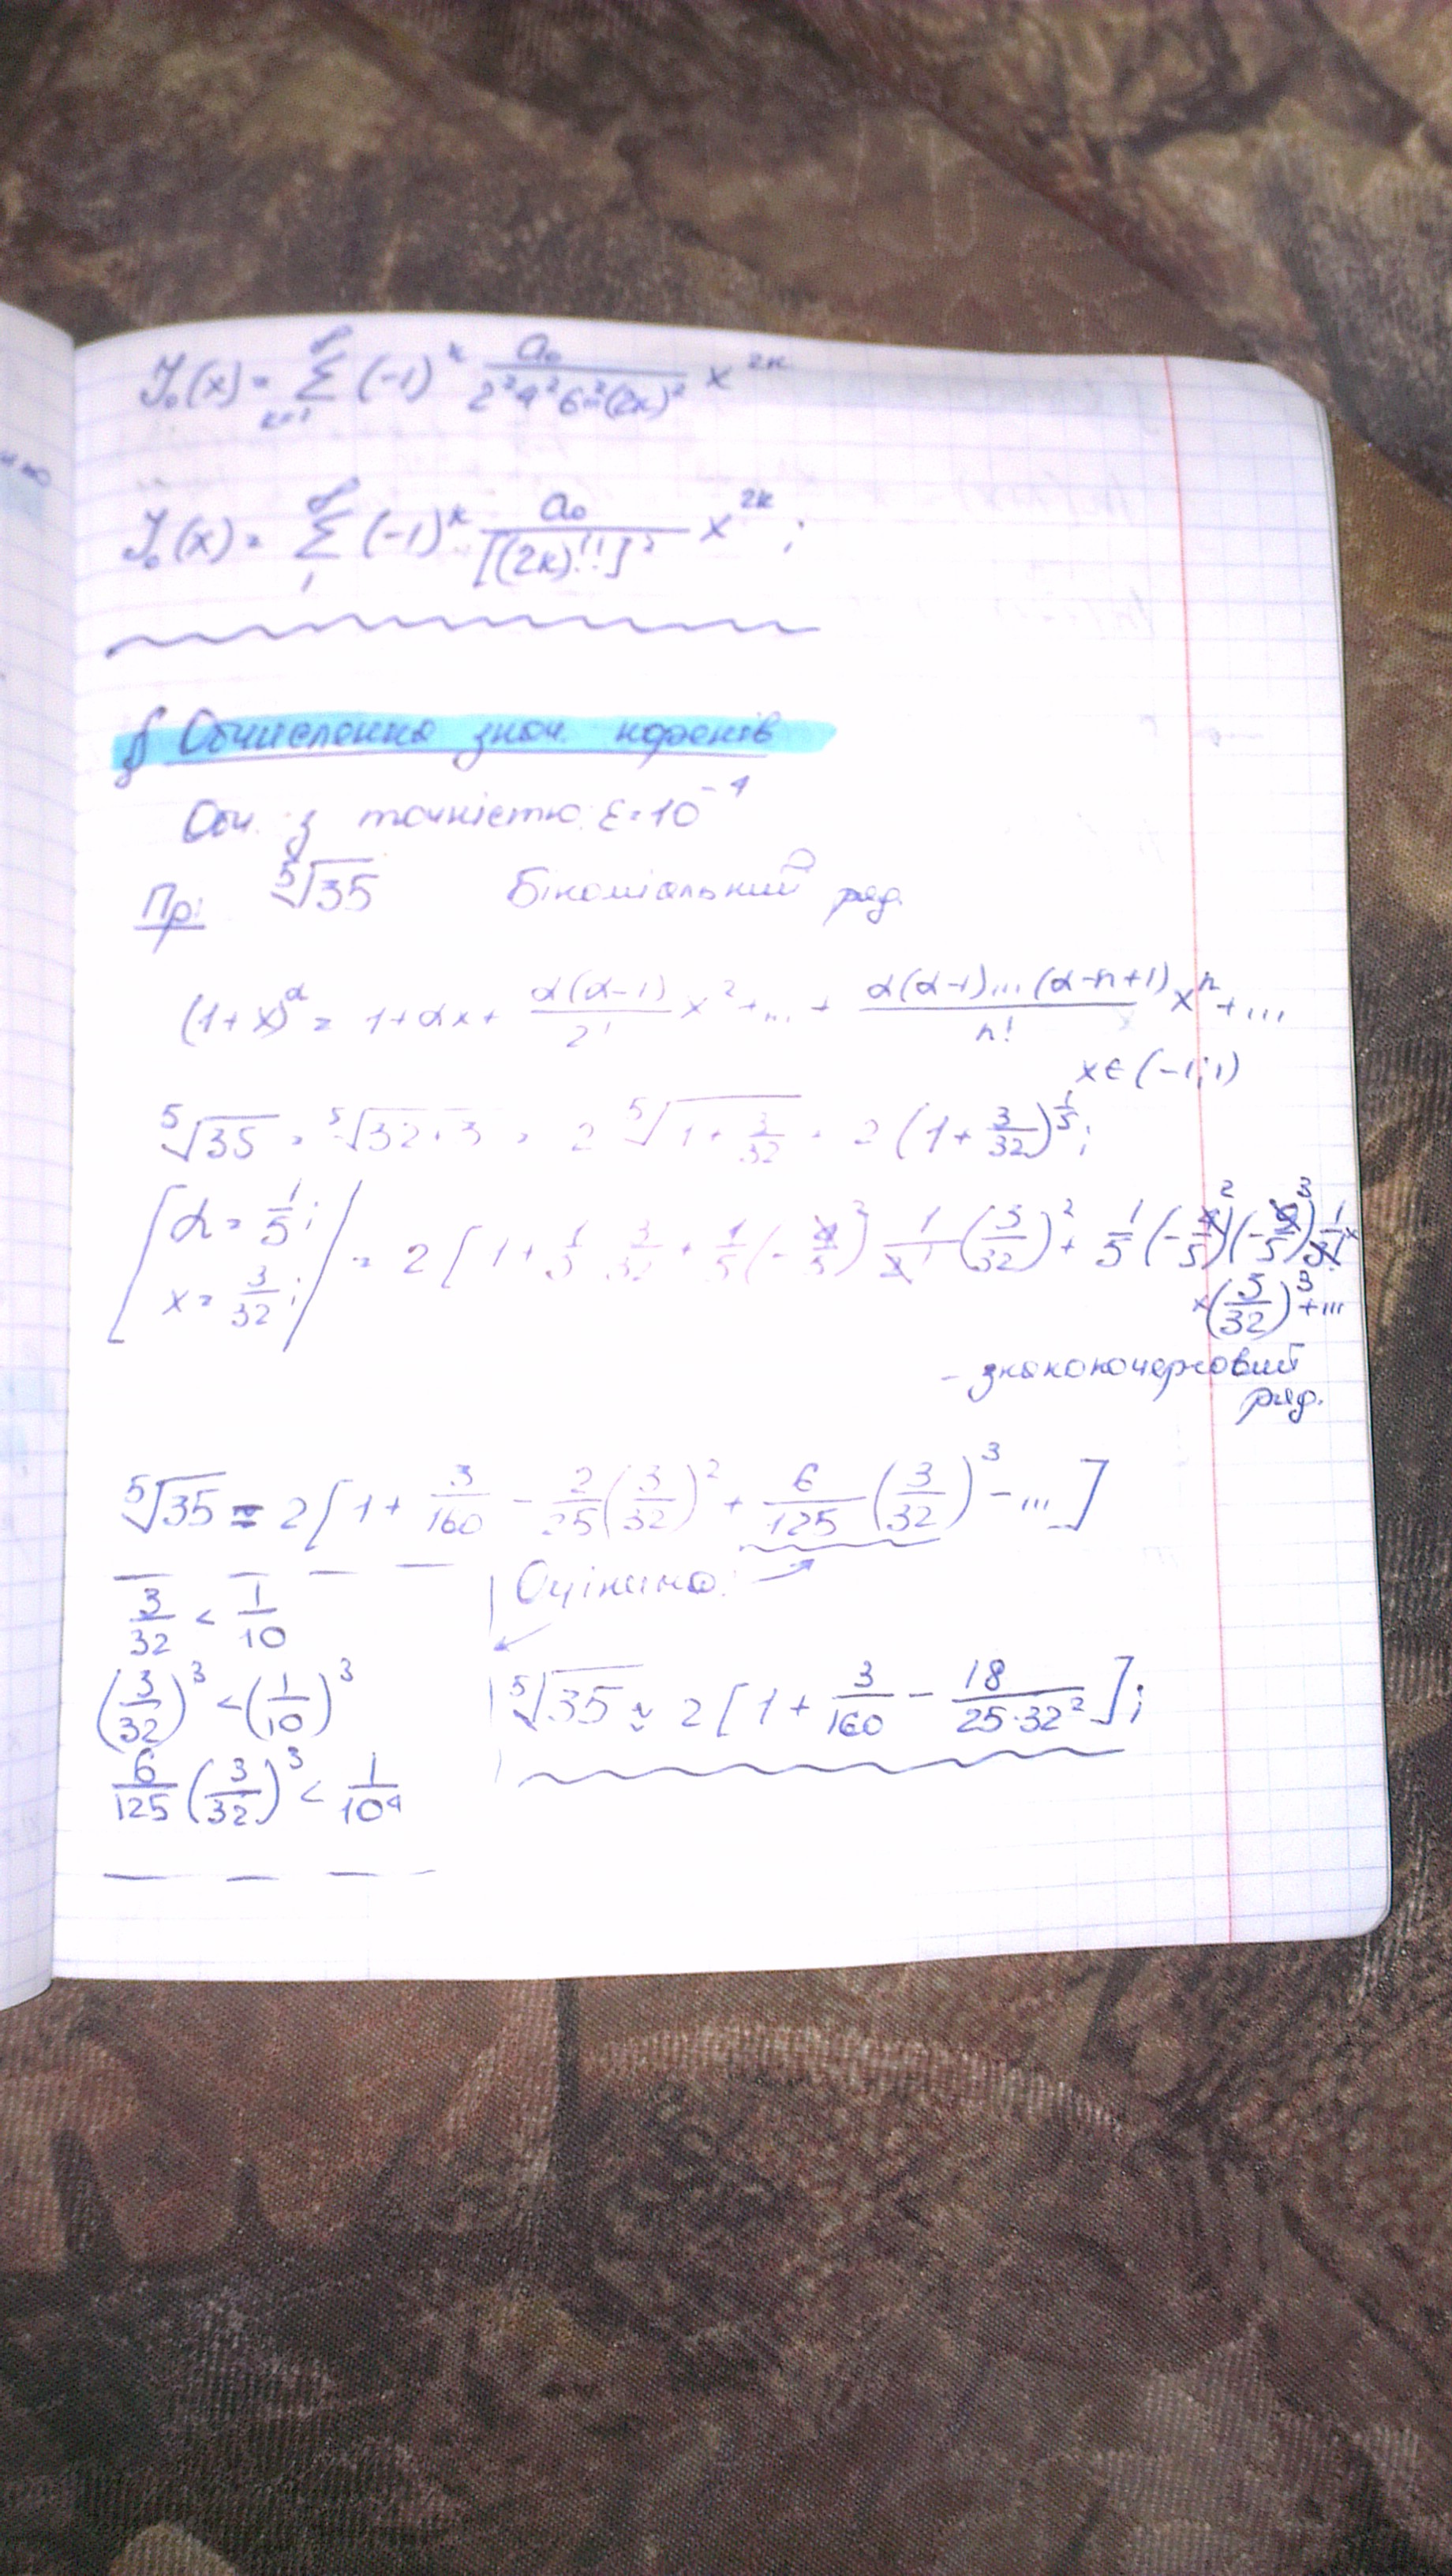 J₀(x) = ∞ Σ k=1 (-1)^k a₀/(2²4²6²...(2k)²) x^2k
J₀(x) = ∞ Σ 1 (-1)^k a₀/[(2k)!!]² x^2k ;
§ Обчислення знач. коренів
Обч. з точністю ε=10^-4
Пр: ⁵√35 Біноміальний ряд.
(1+x)^α = 1+αx+ α(α-1)/2! x²+...+ α(α-1)...(α-n+1)/n! x^n+...
x∈(-1;1)
⁵√35 = ⁵√(32+3) = 2 ⁵√(1+3/32) = 2(1+3/32)^1/5;
[α=1/5; x=3/32;] = 2[1+1/5 3/32 + 1/5(-4/5) 1/2! (3/32)² + 1/5(-4/5)(-9/5) 1/3! ×
×(3/32)³+...
- знакопочерговий
ряд.
⁵√35 = 2[1+ 3/160 - 2/25(3/32)² + 6/125(3/32)³ - ...]
3/32 < 1/10 Оцінимо:
(3/32)³ < (1/10)³ ⁵√35 ≈ 2[1+ 3/160 - 18/(25·32²)];
6/125(3/32)³ < 1/10⁴